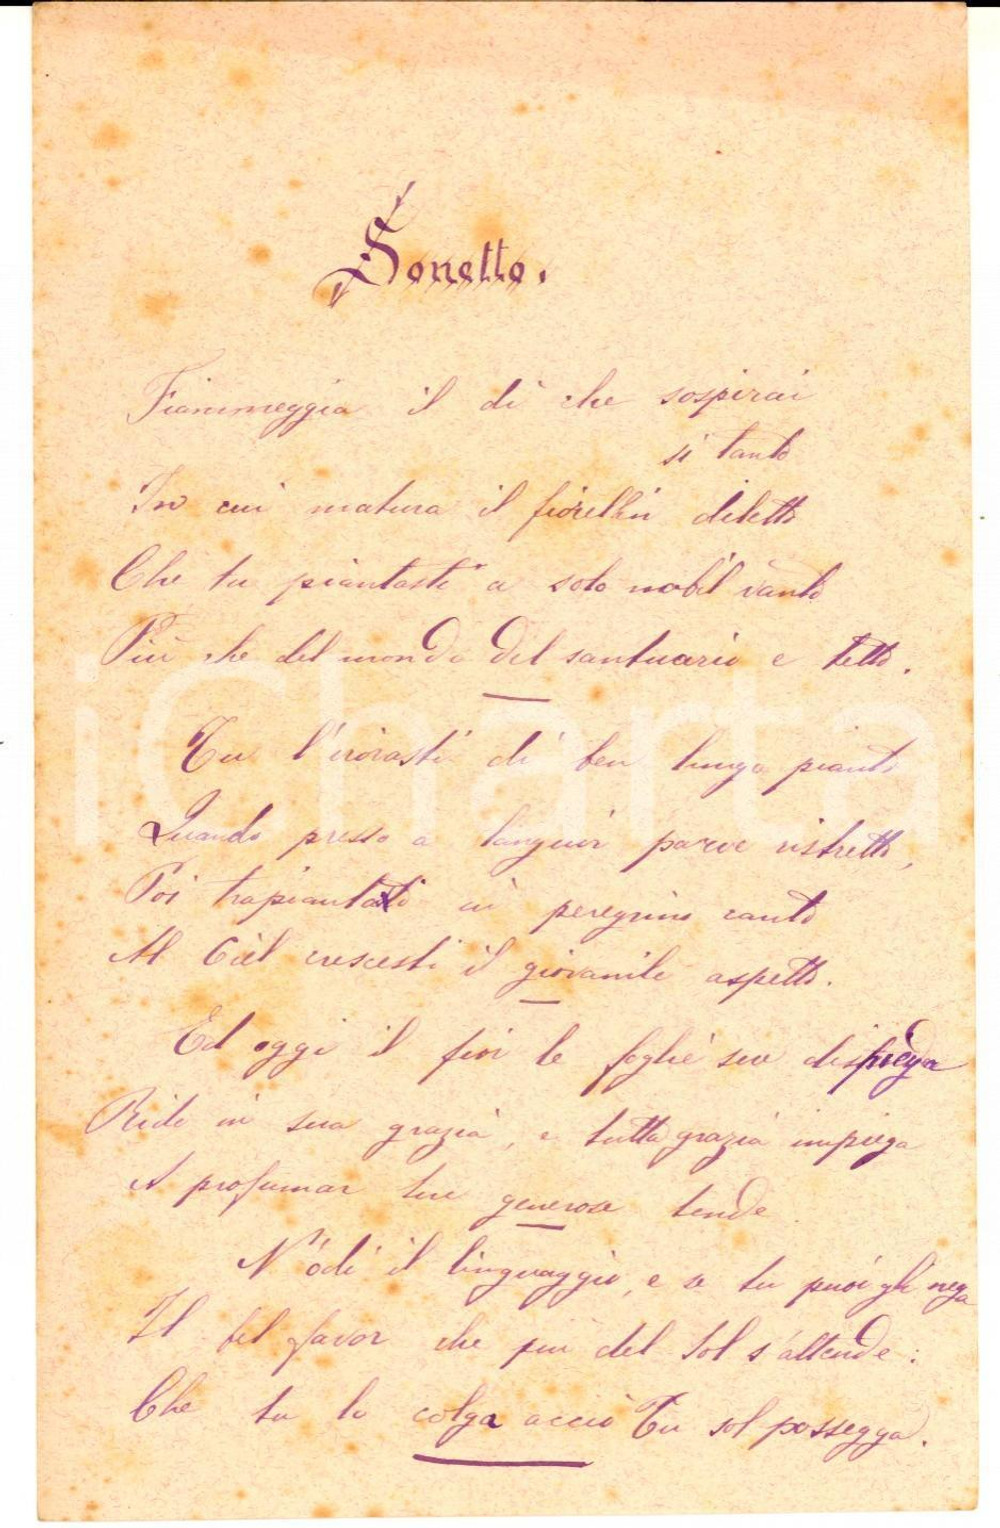 Sonetto.
Fiammeggia il dì che sospirai
sì tanto
In cui matura il fiorellin diletto
Che tu piantasti a solo nobil vanto
Più che del mondo del santuario e tetto.
Tu l'irorasti di ben lungo pianto
Quando presso a languir parve ristretto,
Poi trapiantato in peregrino canto
Al Ciel crescesti il giovanile aspetto.
Ed oggi il fior le foglie sue dispiega
Ride in sua grazia, e tutta grazia impiega
A profumar tue generose tende.
N'odi il linguaggio, e se tu puoi gli nega
Il bel favor che più del Sol s'attende:
Che tu lo colga acciò Tu sol possegga.
iCharta